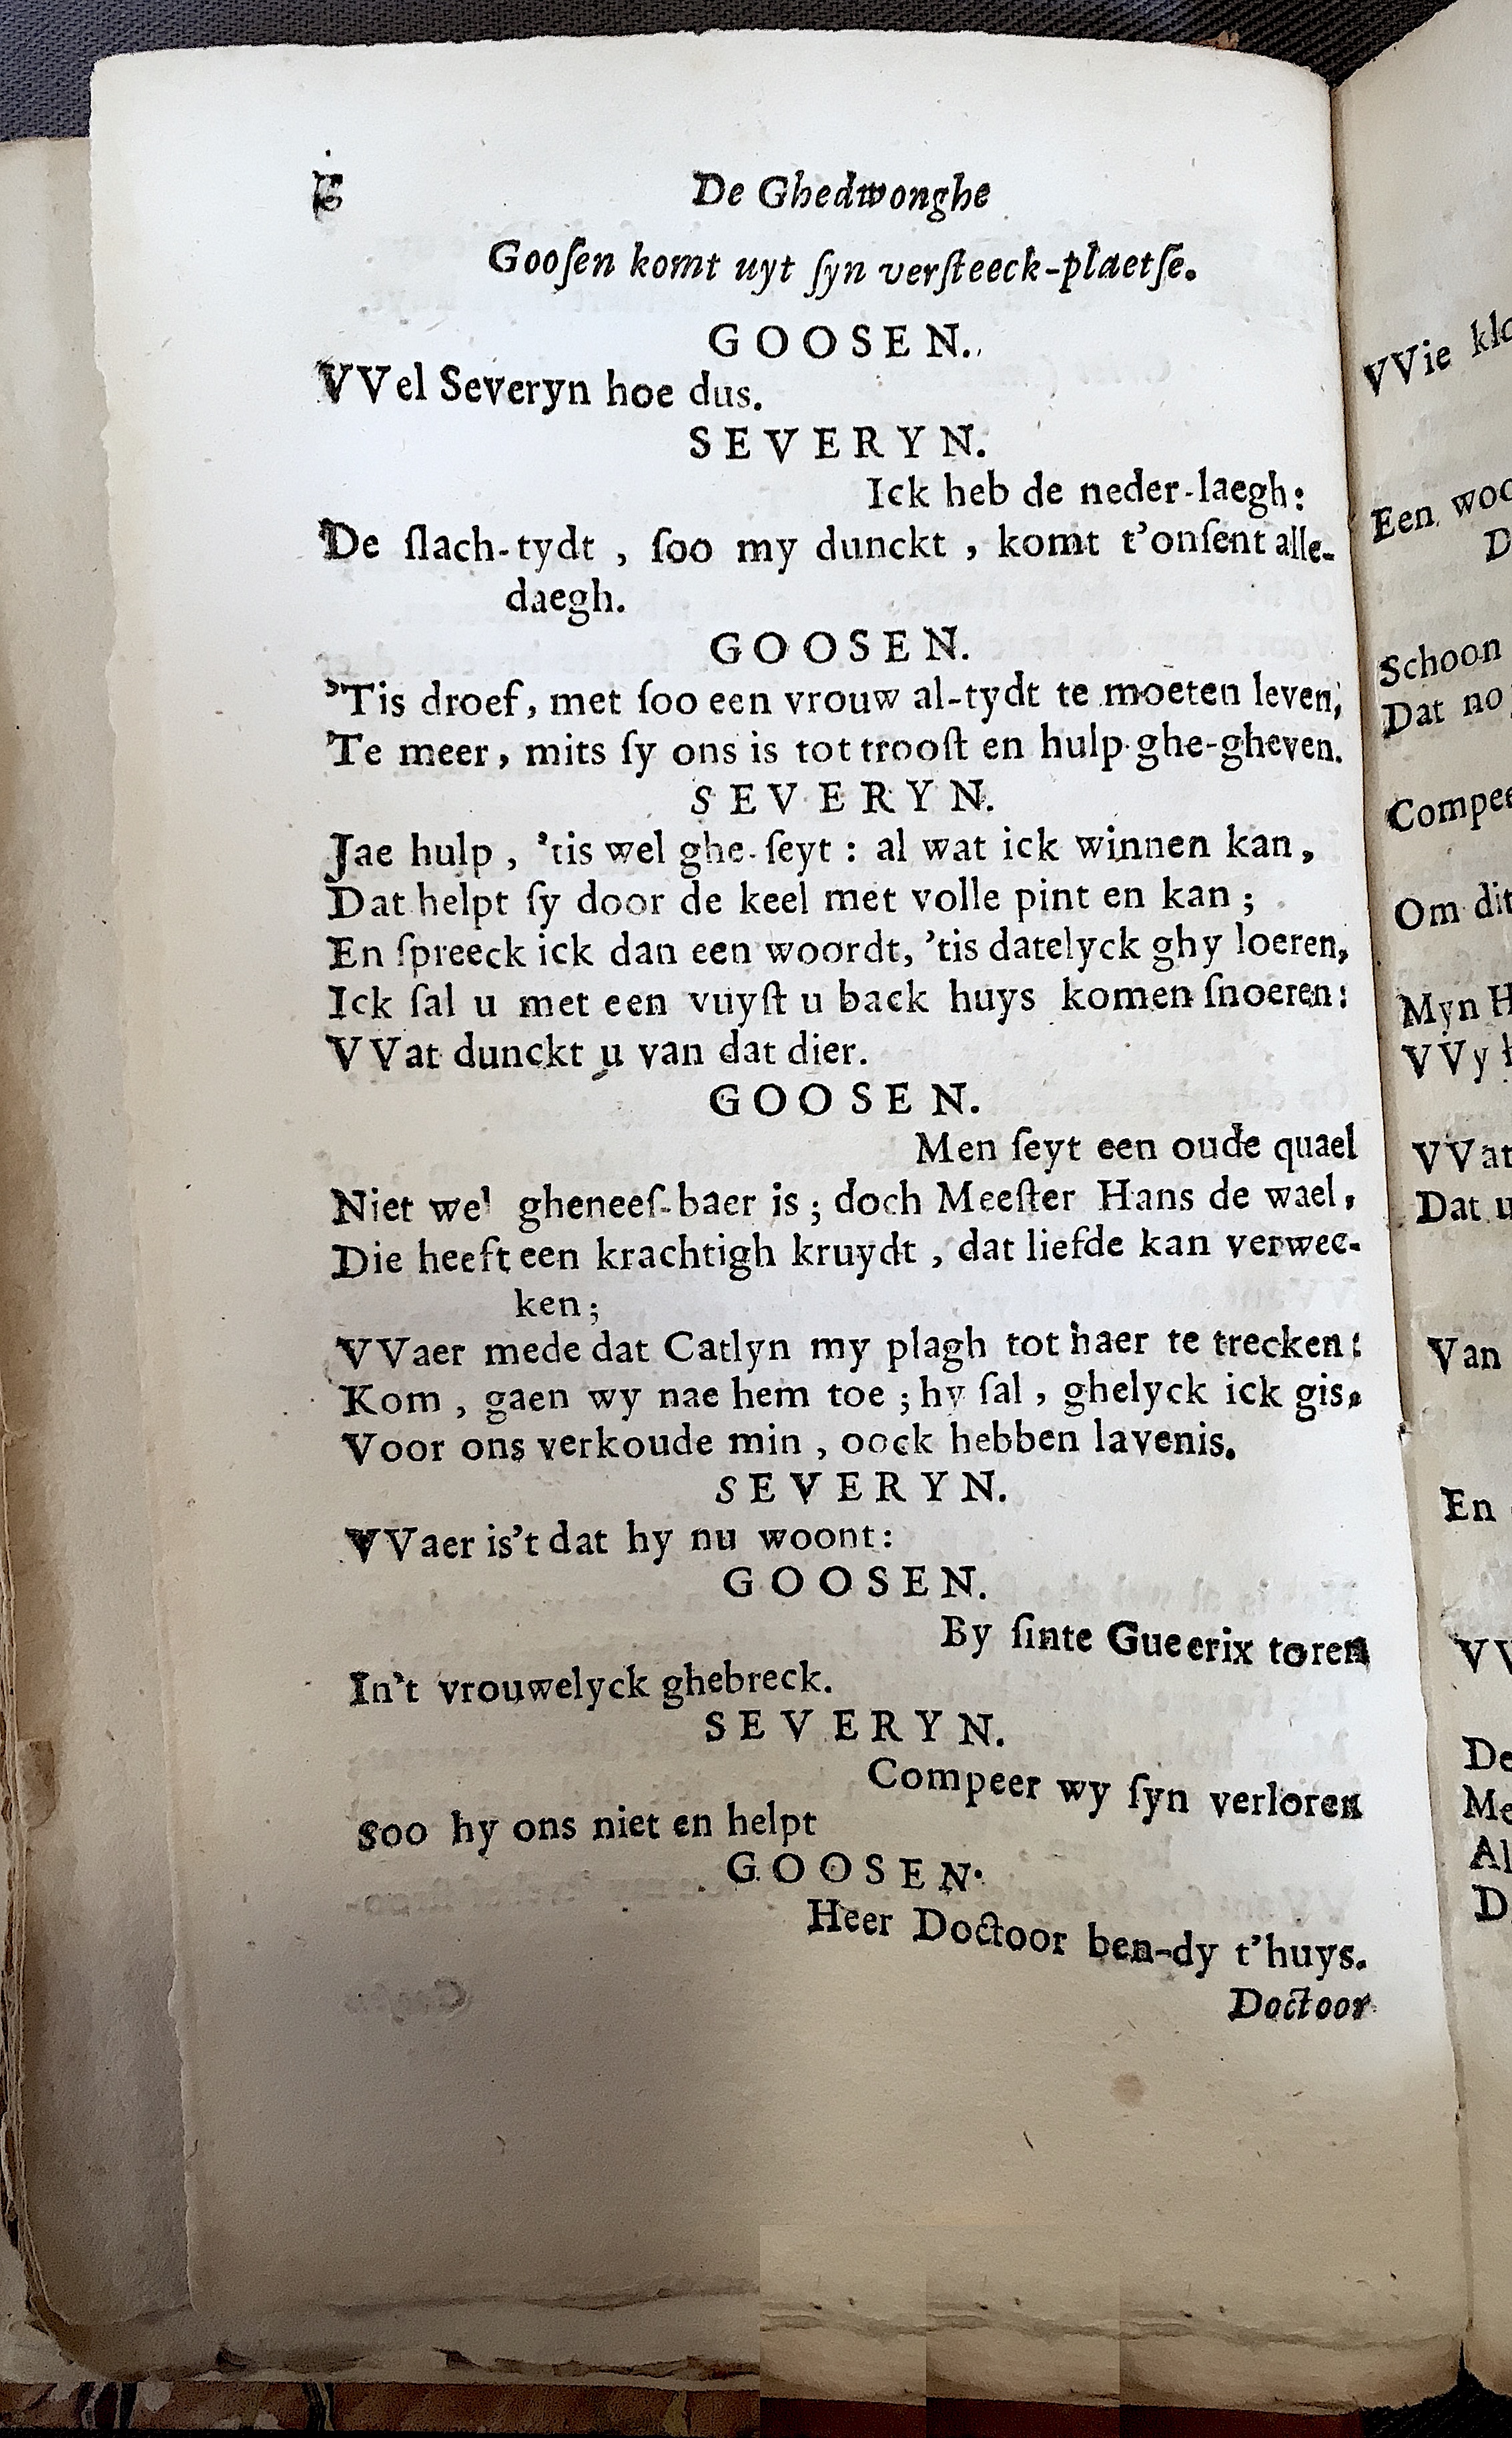 6
De Ghedwonghe
Gooſen komt uyt ſyn verſteeck-plaetſe.
GOOSEN.
VVel Severyn hoe dus.
SEVERYN.
Ick heb de neder-laegh:
De ſlach-tydt , ſoo my dunckt , komt t'onſent alle-
daegh.
GOOSEN.
'Tis droef, met ſoo een vrouw al-tydt te moeten leven,
Te meer, mits ſy ons is tot trooſt en hulp ghe-gheven.
SEVERYN.
Jae hulp , 'tis wel ghe-ſeyt : al wat ick winnen kan,
Dat helpt ſy door de keel met volle pint en kan ;
En ſpreeck ick dan een woordt, 'tis datelyck ghy loeren,
Ick ſal u met een vuyſt u back huys komen ſnoeren:
VVat dunckt u van dat dier.
GOOSEN.
Men ſeyt een oude quael
Niet wel gheneeſ-baer is ; doch Meeſter Hans de wael,
Die heeft een krachtigh kruydt , dat liefde kan verwec-
ken;
VVaer mede dat Catlyn my plagh tot haer te trecken:
Kom , gaen wy nae hem toe ; hy ſal , ghelyck ick gis,
Voor ons verkoude min , oock hebben lavenis.
SEVERYN.
VVaer is't dat hy nu woont:
GOOSEN.
By ſinte Gueerix toren
In't vrouwelyck ghebreck.
SEVERYN.
Compeer wy ſyn verloren
Soo hy ons niet en helpt
GOOSEN.
Heer Doctoor ben-dy t'huys.
Doctoor
VVie
Een
Schoon
Dat
Om
Myn
VVy
VVat
Dat
Van
En